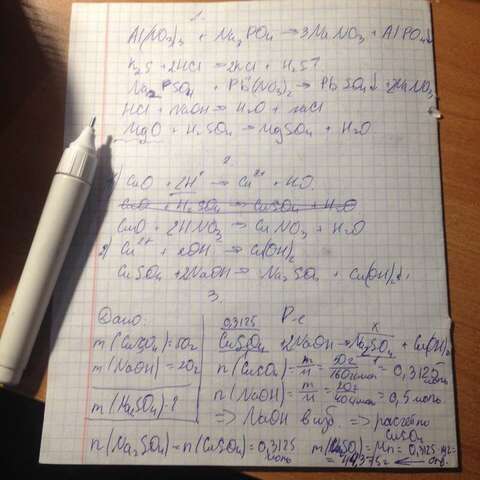 1.
Al(NO₃)₃ + Na₃PO₄ → 3NaNO₃ + AlPO₄↓
K₂S + 2HCl = 2KCl + H₂S↑
Na₂SO₄ + Pb(NO₃)₂ → PbSO₄↓ + 2NaNO₃
HCl + NaOH = H₂O + NaCl
MgO + H₂SO₄ → MgSO₄ + H₂O
2.
1) CuO + 2H⁺ → Cu²⁺ + H₂O
CuO + H₂SO₄ → CuSO₄ + H₂O
CuO + 2HNO₃ → CuNO₃ + H₂O
2) Cu²⁺ + 2OH → Cu(OH)₂
CuSO₄ + 2NaOH → Na₂SO₄ + Cu(OH)₂↓
3.
Дано: 0,3125 Р-е x
m(CuSO₄) = 50г CuSO₄ + 2NaOH → Na₂SO₄ + Cu(OH)₂
m(NaOH) = 20г n(CuSO₄) = m/M = 50г/160г/моль = 0,3125 моль
m(Na₂SO₄) ? n(NaOH) = m/M = 20г/40г/моль = 0,5 моль
=> NaOH в изб. => расчет по CuSO₄
n(Na₂SO₄) = n(CuSO₄) = 0,3125 моль m(Na₂SO₄) = Mn = 0,3125·142 =
= 44,375г ← отв.